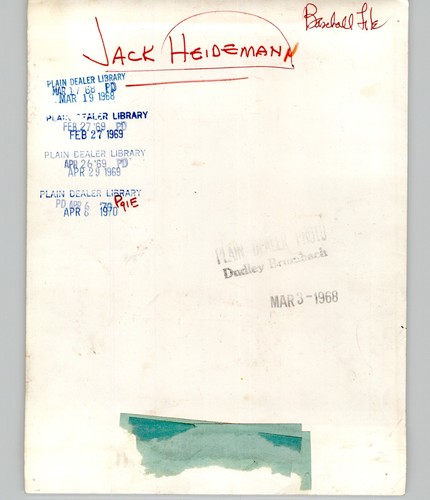 Baseball File
JACK HEIDEMANN
PLAIN DEALER LIBRARY
MAR 17 '68 PD
MAR 19 1968
PLAIN DEALER LIBRARY
FEB 27 '69 PD
FEB 27 1969
PLAIN DEALER LIBRARY
APR 26 '69 PD
APR 29 1969
PLAIN DEALER LIBRARY
PD APR 6 '70 Pg1E
APR 6 1970
PLAIN DEALER PHOTO
Dudley Brumbach
MAR 3 - 1968